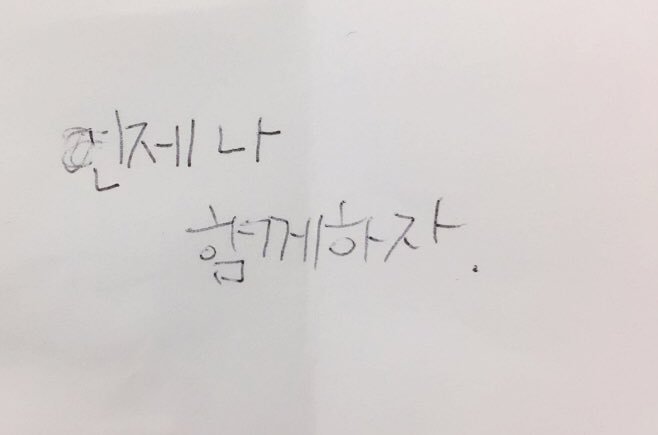 언제나
함께하자.